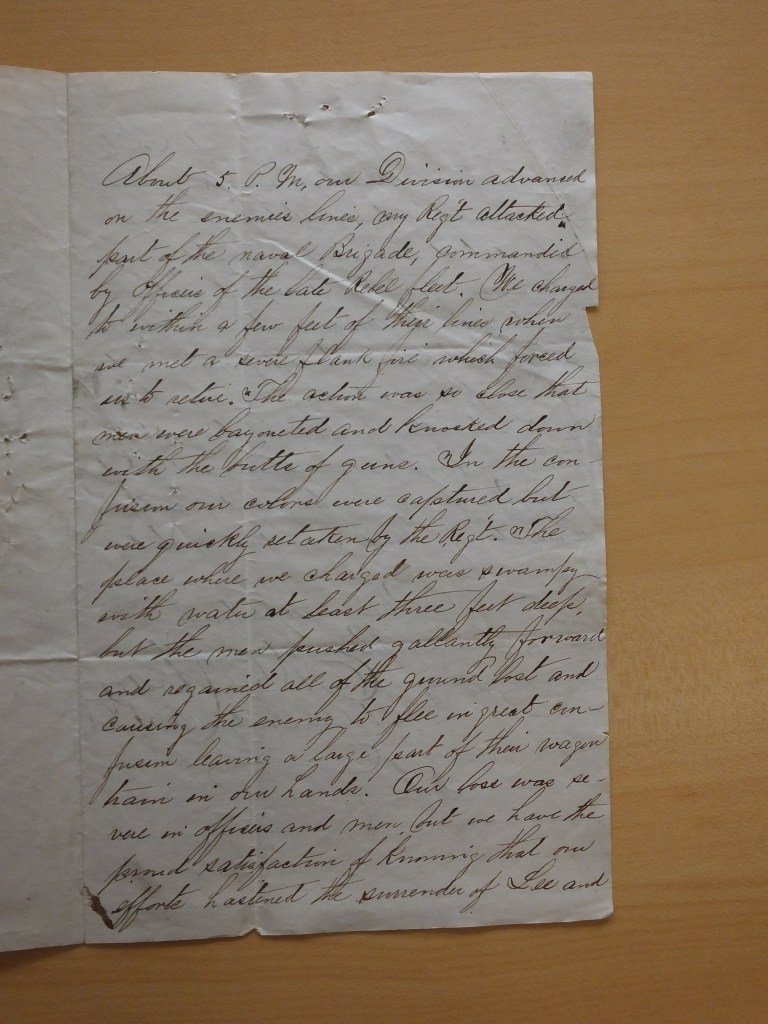 About 5. P. M, our Division advanced
on the enemies lines, my Reg't attacked
part of the naval Brigade, commanded
by officers of the late Rebel fleet. We charged
to within a few feet of their lines when
we met a severe flank fire which forced
us to retire. "The action was so close that
men were bayoneted and knocked down
with the butts of guns. In the con-
fusion our colors were captured but
were quickly retaken by the Reg't. The
place where we charged was swampy
with water at least three feet deep,
but the men pushed gallantly forward
and regained all of the ground lost and
causing the enemy to flee in great con-
fusion leaving a large part of their wagon
train in our hands. Our loss was se-
vere in officers and men, but we have the
proud satisfaction of knowing that our
efforts hastened the surrender of Lee and